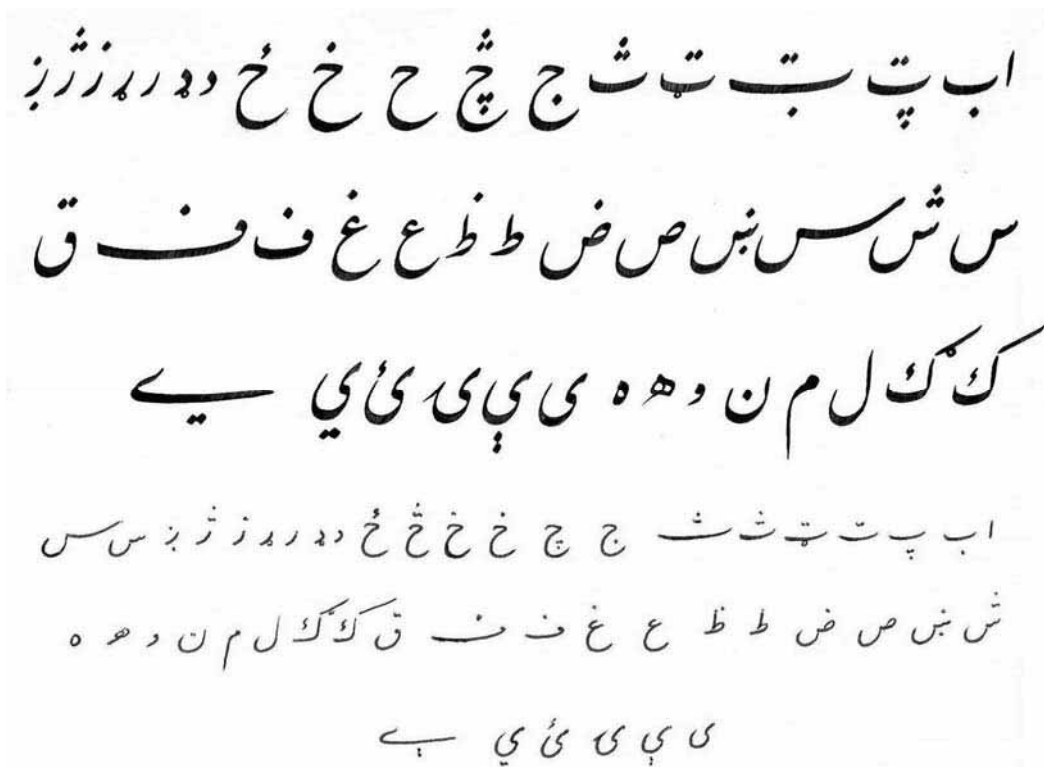 ا ب پ ت ټ ث ج چ ح خ ځ د ډ ر ړ ز ژ ږ
س ش س ښ ص ض ط ظ ع غ ف ف ق
ك ګ ل م ن و ه ه ى ې ۍ ئ ي ے
ا ب پ ت ټ ث ث ج چ خ خ څ ځ د ډ ر ړ ز ژ ږ س س
ش ښ ص ض ط ظ ع غ ف ف ق ك ګ ل م ن و ه ه
ى ې ۍ ئ ي ے